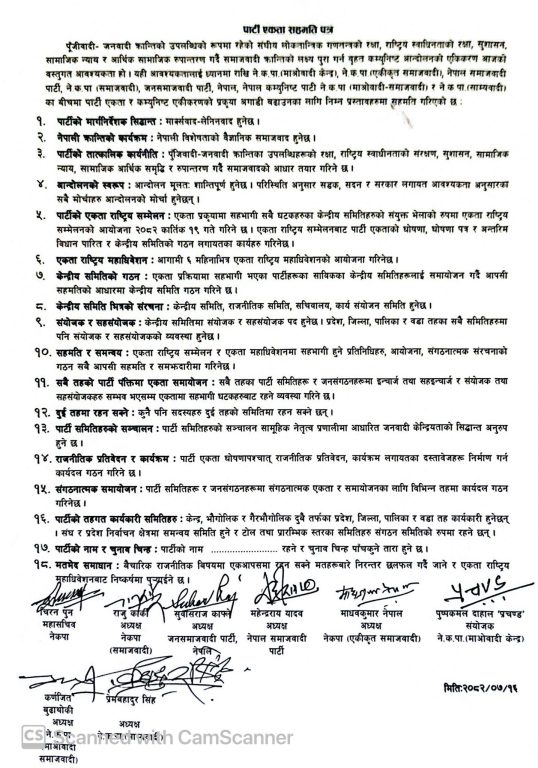 पार्टी एकता सहमति पत्र
पूँजीवादी- जनवादी क्रान्तिको उपलब्धिको रूपमा रहेको संघीय लोकतान्त्रिक गणतन्त्रको रक्षा, राष्ट्रिय स्वाधिनताको रक्षा, सुशासन,
सामाजिक न्याय र आर्थिक सामाजिक रुपान्तरण गर्दै समाजवादी क्रान्तिको लक्ष्य पुरा गर्न वृहत कम्युनिष्ट आन्दोलनको एकिकरण आजको
वस्तुगत आवश्यकता हो। यही आवश्यकतालाई ध्यानमा राखि ने.क.पा.(माओवादी केन्द्र), ने.क.पा (एकीकृत समाजवादी), नेपाल समाजवादी
पार्टी, ने.क.पा (समाजवादी), जनसमाजवादी पार्टी, नेपाल, नेपाल कम्युनिष्ट पाटी ने.का (माओवादी-समाजवादी) र ने क.पा.(साम्यवादी)
का बीचमा पार्टी एकता र कम्युनिष्ट एकीकरणको प्रकृया अगाडी बढाउनका लागि निम्न प्रस्तावहरुमा सहमति गरिएको छ :
१. पार्टीको मार्गनिर्देशक सिद्धान्त : मार्क्सवाद-लेनिनवाद हुनेछ।
२. नेपाली क्रान्तिको कार्यक्रम : नेपाली विशेषताको वैज्ञानिक समाजवाद हुनेछ।
३. पार्टीको तात्कालिक कार्यनीति : पूँजिवादी-जनवादी क्रान्तिका उपलब्धिहरुको रक्षा, राष्ट्रिय स्वाधीनताको संरक्षण, सुशासन, सामाजिक
न्याय, सामाजिक आर्थिक समृद्धि र रुपान्तरण गर्दै समाजवादको आधार तयार गरिने छ।
४. आन्दोलनको स्वरूप : आन्दोलन मूलतः शान्तिपूर्ण हुनेछ। परिस्थिति अनुसार सडक, सदन र सरकार लगायत आवश्यकता अनुसारका
सबै मोर्चाहरु आन्दोलनको मोर्चा हुनेछन्।
५. पार्टीको एकता राष्ट्रिय सम्मेलन : एकता प्रकृयामा सहभागी सबै घटकहरुका केन्द्रीय समितिहरुको संयुक्त भेलाको रुपमा एकता राष्ट्रिय
सम्मेलनको आयोजना २०८२ कार्तिक १९ गते गरिने छ। एकता राष्ट्रिय सम्मेलनबाट पार्टी एकताको घोषणा, घोषणा पत्र र अन्तरिम
विधान पारित र केन्द्रीय समितिको गठन लगायतका कार्यहरु गरिनेछ।
६. एकता राष्ट्रिय महाधिवेशन : आगामी ६ महिनाभित्र एकता राष्ट्रिय महाधिवेशनको आयोजना गरिनेछ।
७. केन्द्रीय समितिको गठन : एकता प्रक्रियामा सहभागी भएका पार्टीहरूका साविकका केन्द्रीय समितिहरूलाई समायोजन गर्दै आपसी
सहमतिको आधारमा केन्द्रीय समिति गठन गरिने छ।
८. केन्द्रीय समिति भित्रको संरचना : केन्द्रीय समिति, राजनीतिक समिति, सचिवालय, कार्य संयोजन समिति हुनेछ।
९. संयोजक र सहसंयोजक : केन्द्रीय समितिमा संयोजक र सहसंयोजक पद हुनेछ। प्रदेश, जिल्ला, पालिका र वडा तहका सबै समितिहरुमा
पनि संयोजक र सहसंयोजकको व्यवस्था हुनेछ।
१०. सहमति र समन्वय : एकता राष्ट्रिय सम्मेलन र एकता महाधिवेशनमा सहभागी हुने प्रतिनिधिहरु, आयोजना, संगठनात्मक संरचनाको
गठन सबै आपसी सहमति र समझदारीमा गरिनेछ।
११. सबै तहको पार्टी पंक्तिमा एकता समायोजन : सबै तहका पार्टी समितिहरू र जनसंगठनहरुमा इन्चार्ज तथा सहइन्चार्ज र संयोजक तथा
सहसंयोजकहरु सम्भव भएसम्म एकतामा सहभागी घटकहरुबाट रहने व्यवस्था गरिने छ।
१२. दुई तहमा रहन सक्ने : कुनै पनि सदस्यहरु दुई तहको समितिमा रहन सक्ने छन्।
१३. पार्टी समितिहरुको सञ्चालन : पार्टी समितिहरुको सञ्चालन सामूहिक नेतृत्व प्रणालीमा आधारित जनवादी केन्द्रियताको सिद्धान्त अनुरुप
हुने छ।
१४. राजनीतिक प्रतिवेदन र कार्यक्रम : पार्टी एकता घोषणापश्चात् राजनीतिक प्रतिवेदन, कार्यक्रम लगायतका दस्तावेजहरू निर्माण गर्न
कार्यदल गठन गरिने छ।
१५. संगठनात्मक समायोजन : पार्टी समितिहरू र जनसंगठनहरूमा संगठनात्मक एकता र समायोजनका लागि विभिन्न तहमा कार्यदल गठन
गरिनेछ।
१६. पार्टीको तहगत कार्यकारी समितिहरु : केन्द्र, भौगोलिक र गैरभौगोलिक दुबै तर्फका प्रदेश, जिल्ला, पालिका र वडा तह कार्यकारी हुनेछन्
। संघ र प्रदेश निर्वाचन क्षेत्रमा समन्वय तह हुने र टोल तथा प्रारम्भिक स्तरका समितिहरु संगठन समितिको रुपमा रहने छन्।
१७. पार्टीको नाम र चुनाव चिन्ह : पार्टीको नाम ........................ रहने र चुनाव चिन्ह पाँचकुने तारा हुने छ।
१८. मतभेद समाधान : वैचारिक राजनीतिक विषयमा एकआपसमा रहन सक्ने मतहरुबारे निरन्तर छलफल गर्दै जाने र एकता राष्ट्रिय
महाधिवेशनबाट निष्कर्षमा पुर्‍याईने छ।
चिरन पुन राजु कार्की सुवासराज काफ्ले महेन्द्रराय यादव माधवकुमार नेपाल पुष्पकमल दाहाल 'प्रचण्ड'
महासचिव अध्यक्ष अध्यक्ष अध्यक्ष अध्यक्ष संयोजक
नेकपा नेकपा जनसमाजवादी पार्टी, नेपाल समाजवादी नेकपा (एकीकृत समाजवादी) ने.क.पा.(माओवादी केन्द्र)
(समाजवादी) नेपाल पार्टी
मिति:२०८२/०७/१६
कर्णजित प्रेमबहादुर सिंह
बुढाथोकी
अध्यक्ष अध्यक्ष
ने.क.पा. ने.क.पा.(समाजवादी)
(माओवादी
समाजवादी)
CS Scanned with CamScanner